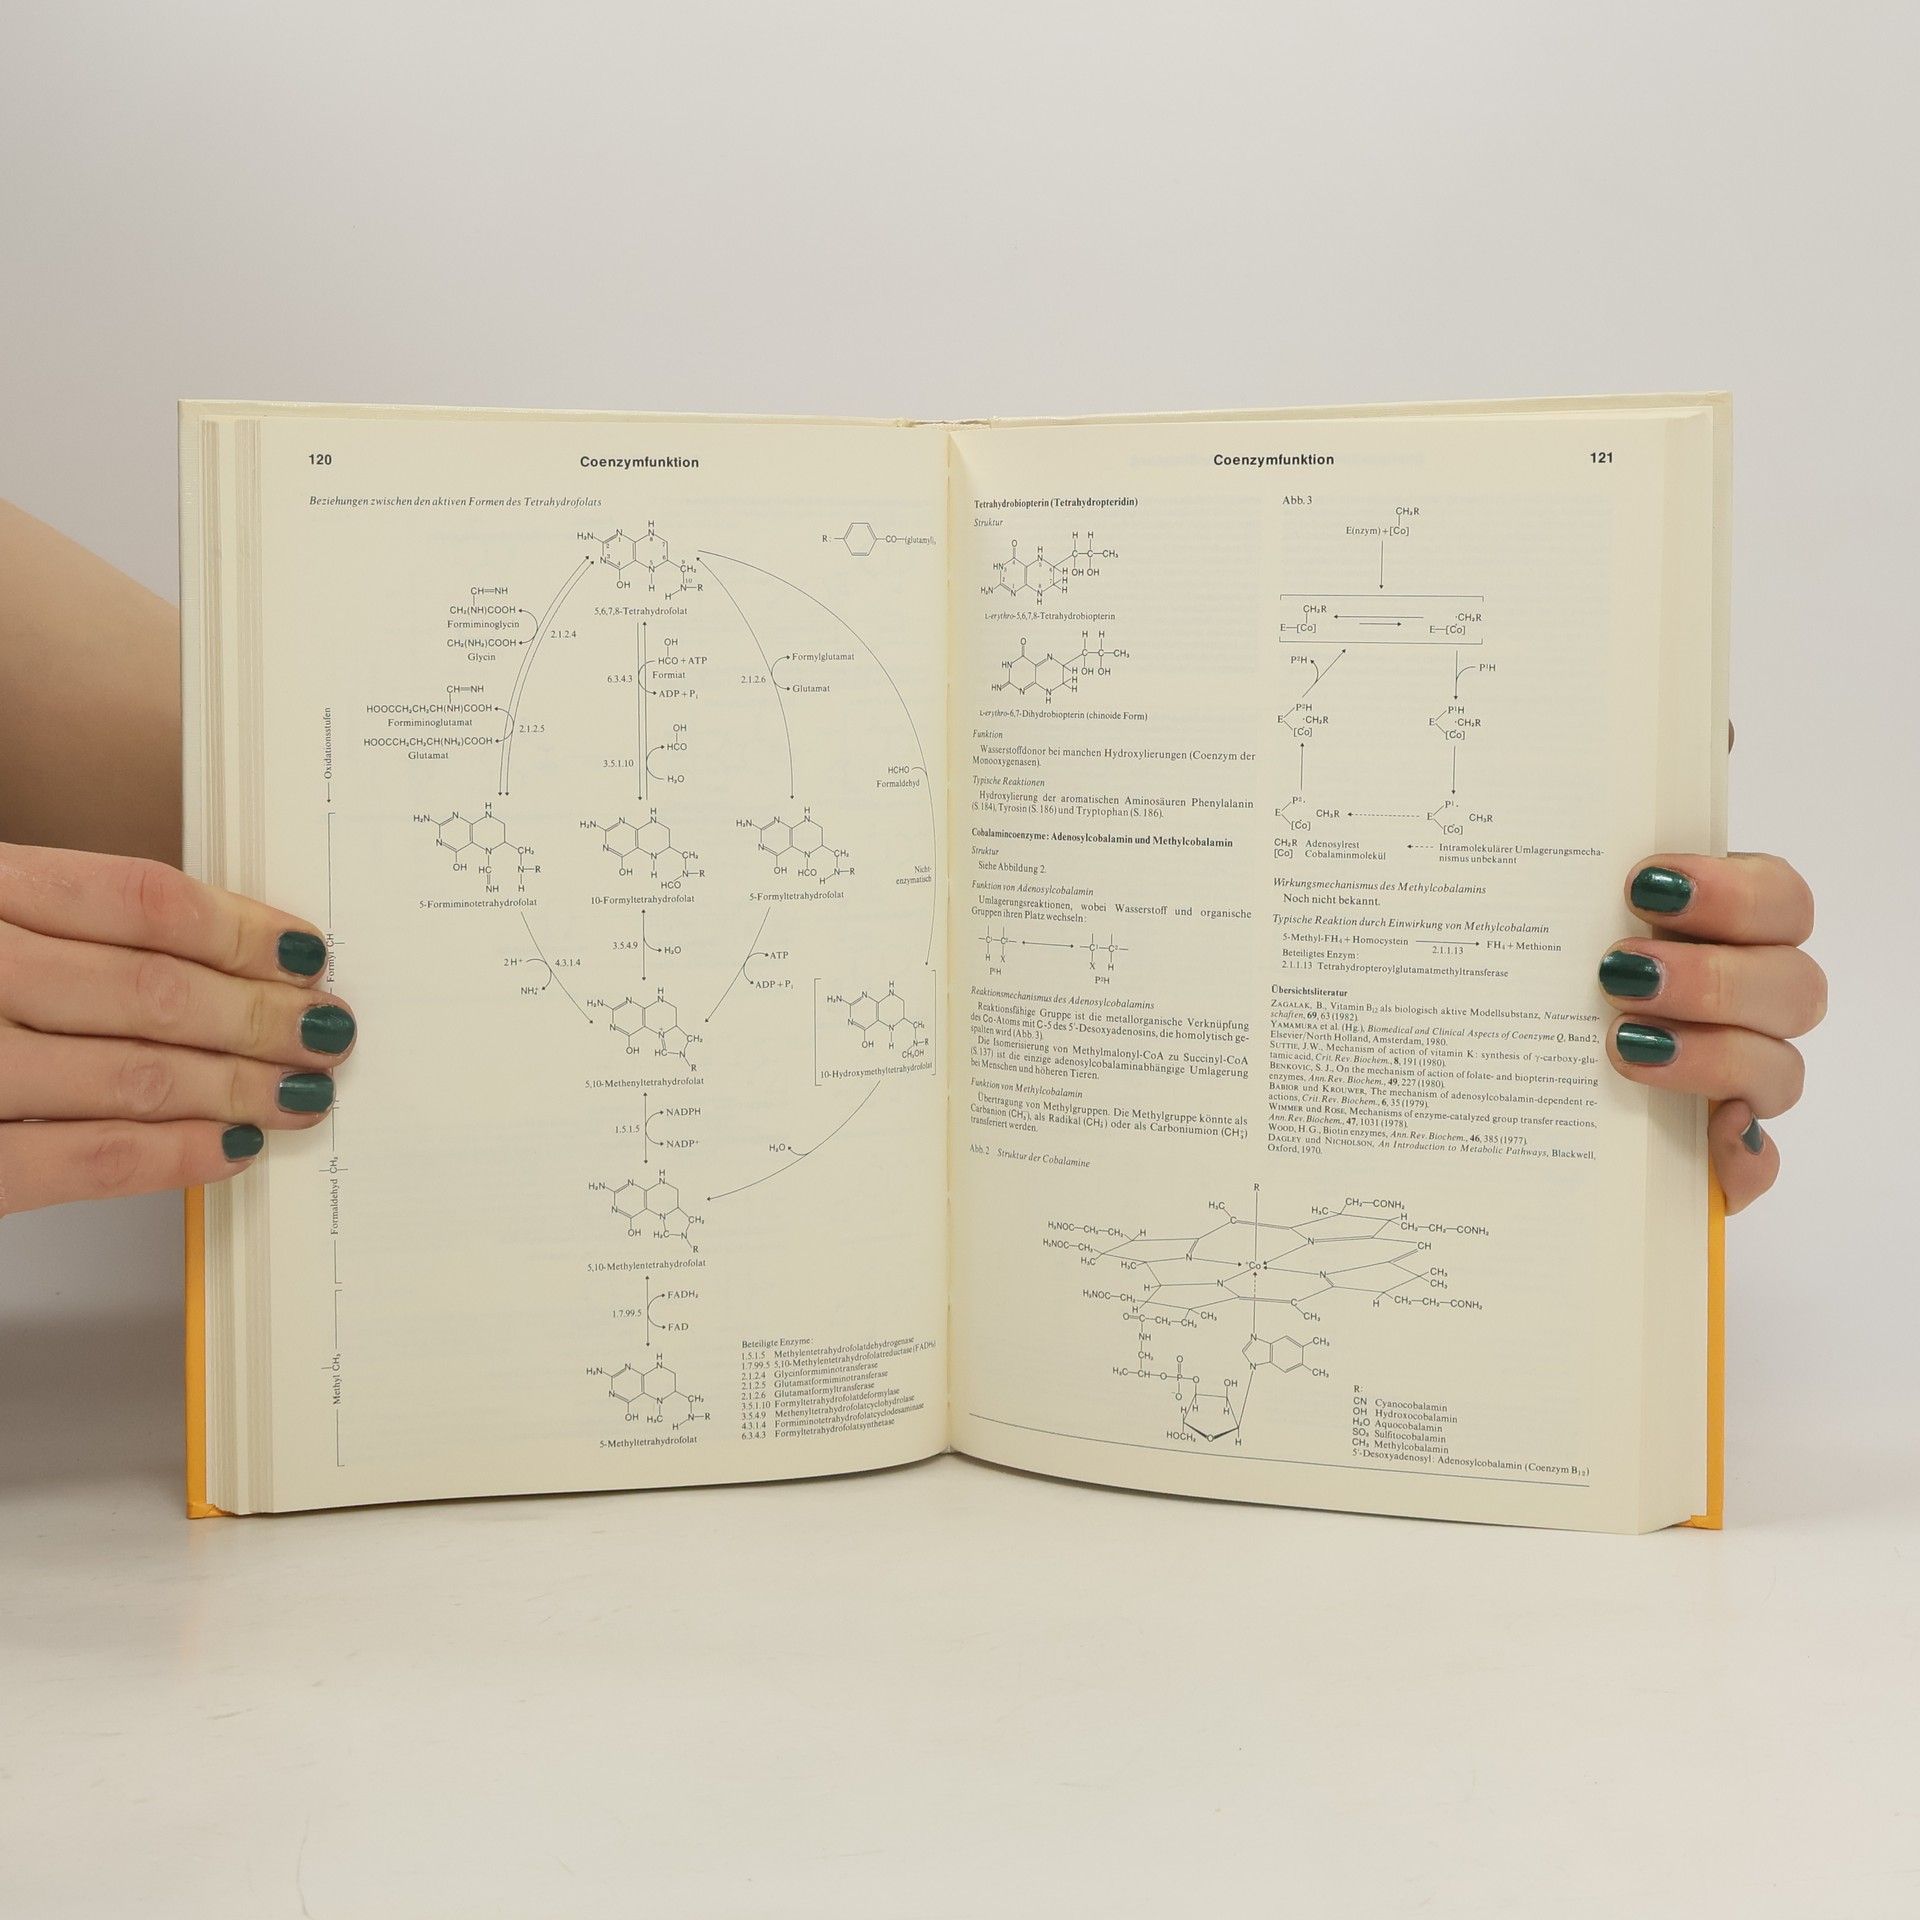 120
Coenzymfunktion
Beziehungen zwischen den aktiven Formen des Tetrahydrofolats
R: CO—(glutamyl)ₙ
5,6,7,8-Tetrahydrofolat
CH=NH
CH₂(NH)COOH
Formiminoglycin
CH₂(NH₂)COOH
Glycin
2.1.2.4
CH=NH
HOOCCH₂CH₂CH(NH)COOH
Formiminoglutamat
HOOCCH₂CH₂CH(NH₂)COOH
Glutamat
2.1.2.5
OH
HCO + ATP
Formiat
6.3.4.3
ADP + Pᵢ
OH
HCO
3.5.1.10
H₂O
Formylglutamat
2.1.2.6
Glutamat
HCHO
Formaldehyd
Nicht-
enzymatisch
Oxidationsstufen
5-Formiminotetrahydrofolat
10-Formyltetrahydrofolat
5-Formyltetrahydrofolat
2 H⁺
4.3.1.4
NH₄⁺
3.5.4.9
H₂O
ATP
ADP + Pᵢ
Formyl CH
5,10-Methenyltetrahydrofolat
10-Hydroxymethyltetrahydrofolat
NADPH
1.5.1.5
NADP⁺
H₂O
Formaldehyd CH₂
5,10-Methylentetrahydrofolat
FADH₂
1.7.99.5
FAD
Methyl CH₃
5-Methyltetrahydrofolat
Beteiligte Enzyme:
1.5.1.5 Methylentetrahydrofolatdehydrogenase
1.7.99.5 5,10-Methylentetrahydrofolatreductase (FADH₂)
2.1.2.4 Glycinformiminotransferase
2.1.2.5 Glutamatformiminotransferase
2.1.2.6 Glutamatformyltransferase
3.5.1.10 Formyltetrahydrofolatdeformylase
3.5.4.9 Methenyltetrahydrofolatcyclohydrolase
4.3.1.4 Formiminotetrahydrofolatcyclodesaminase
6.3.4.3 Formyltetrahydrofolatsynthetase
Coenzymfunktion
121
Tetrahydrobiopterin (Tetrahydropteridin)
Struktur
L-erythro-5,6,7,8-Tetrahydrobiopterin
L-erythro-6,7-Dihydrobiopterin (chinoide Form)
Funktion
Wasserstoffdonor bei manchen Hydroxylierungen (Coenzym der
Monooxygenasen).
Typische Reaktionen
Hydroxylierung der aromatischen Aminosäuren Phenylalanin
(S. 184), Tyrosin (S. 186) und Tryptophan (S. 186).
Cobalamincoenzyme: Adenosylcobalamin und Methylcobalamin
Struktur
Siehe Abbildung 2.
Funktion von Adenosylcobalamin
Umlagerungsreaktionen, wobei Wasserstoff und organische
Gruppen ihren Platz wechseln:
P¹H
P²H
Reaktionsmechanismus des Adenosylcobalamins
Reaktionsfähige Gruppe ist die metallorganische Verknüpfung
des Co-Atoms mit C-5 des 5'-Desoxyadenosins, die homolytisch ge-
spalten wird (Abb. 3).
Die Isomerisierung von Methylmalonyl-CoA zu Succinyl-CoA
(S. 137) ist die einzige adenosylcobalaminabhängige Umlagerung
bei Menschen und höheren Tieren.
Funktion von Methylcobalamin
Übertragung von Methylgruppen. Die Methylgruppe könnte als
Carbanion (CH₃⁻), als Radikal (CH₃·) oder als Carboniumion (CH₃⁺)
transferiert werden.
Abb. 2 Struktur der Cobalamine
Abb. 3
CH₂R
E(nzym) + [Co]
CH₂R
E—[Co]
·CH₂R
E—[Co]
P²H
P¹H
P²H
E ·CH₂R
[Co]
P¹H
E ·CH₂R
[Co]
P²·
E CH₃R
[Co]
P¹·
E CH₃R
[Co]
CH₂R Adenosylrest
[Co] Cobalaminmolekül
Intramolekulärer Umlagerungsmecha-
nismus unbekannt
Wirkungsmechanismus des Methylcobalamins
Noch nicht bekannt.
Typische Reaktion durch Einwirkung von Methylcobalamin
5-Methyl-FH₄ + Homocystein → FH₄ + Methionin
2.1.1.13
Beteiligtes Enzym:
2.1.1.13 Tetrahydropteroylglutamatmethyltransferase
Übersichtsliteratur
ZAGALAK, B., Vitamin B₁₂ als biologisch aktive Modellsubstanz, Naturwissen-
schaften, 69, 63 (1982).
YAMAMURA et al. (Hg.), Biomedical and Clinical Aspects of Coenzyme Q, Band 2,
Elsevier/North Holland, Amsterdam, 1980.
SUTTIE, J.W., Mechanism of action of vitamin K: synthesis of γ-carboxy-glu-
tamic acid, Crit. Rev. Biochem., 8, 191 (1980).
BENKOVIC, S. J., On the mechanism of action of folate- and biopterin-requiring
enzymes, Ann. Rev. Biochem., 49, 227 (1980).
BABIOR und KROUWER, The mechanism of adenosylcobalamin-dependent re-
actions, Crit. Rev. Biochem., 6, 35 (1979).
WIMMER und ROSE, Mechanisms of enzyme-catalyzed group transfer reactions,
Ann. Rev. Biochem., 47, 1031 (1978).
WOOD, H. G., Biotin enzymes, Ann. Rev. Biochem., 46, 385 (1977).
DAGLEY und NICHOLSON, An Introduction to Metabolic Pathways, Blackwell,
Oxford, 1970.
R:
CN Cyanocobalamin
OH Hydroxocobalamin
H₂O Aquocobalamin
SO₃ Sulfitocobalamin
CH₃ Methylcobalamin
5'-Desoxyadenosyl: Adenosylcobalamin (Coenzym B₁₂)